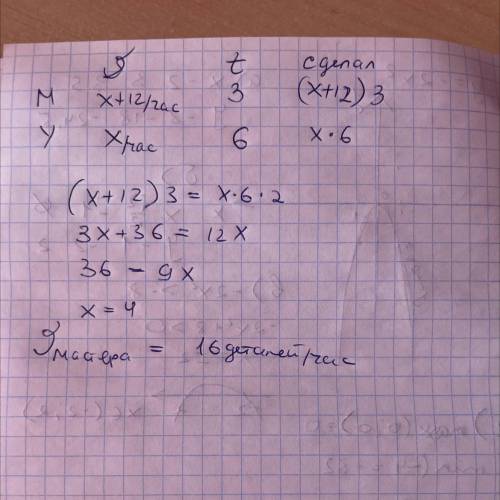 𝒱 t сделал
М x+12/час 3 (x+12)3
У x/час 6 x·6
(x+12)3 = x·6·2
3x+36 = 12x
36 - 9x
x = 4
мастера = 16 деталей/час